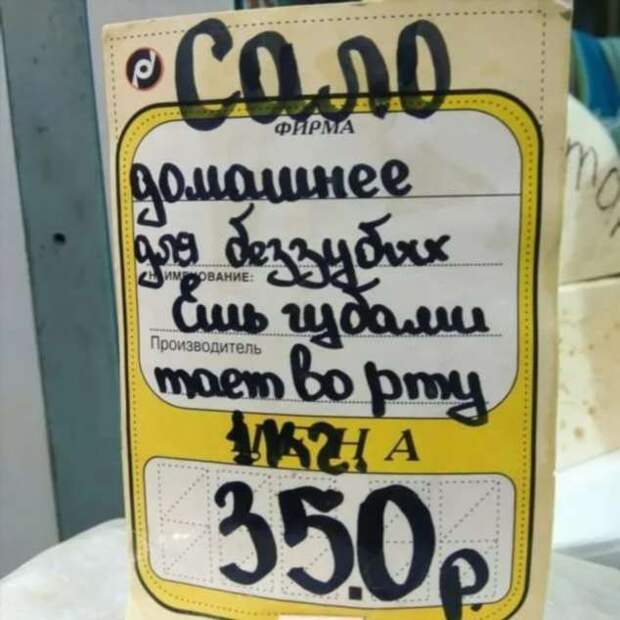 Сало
ФИРМА
домашнее
для беззубых
НАИМЕНОВАНИЕ:
Ешь губами
Производитель
тает во рту
ЦЕНА
1кг.
350р.